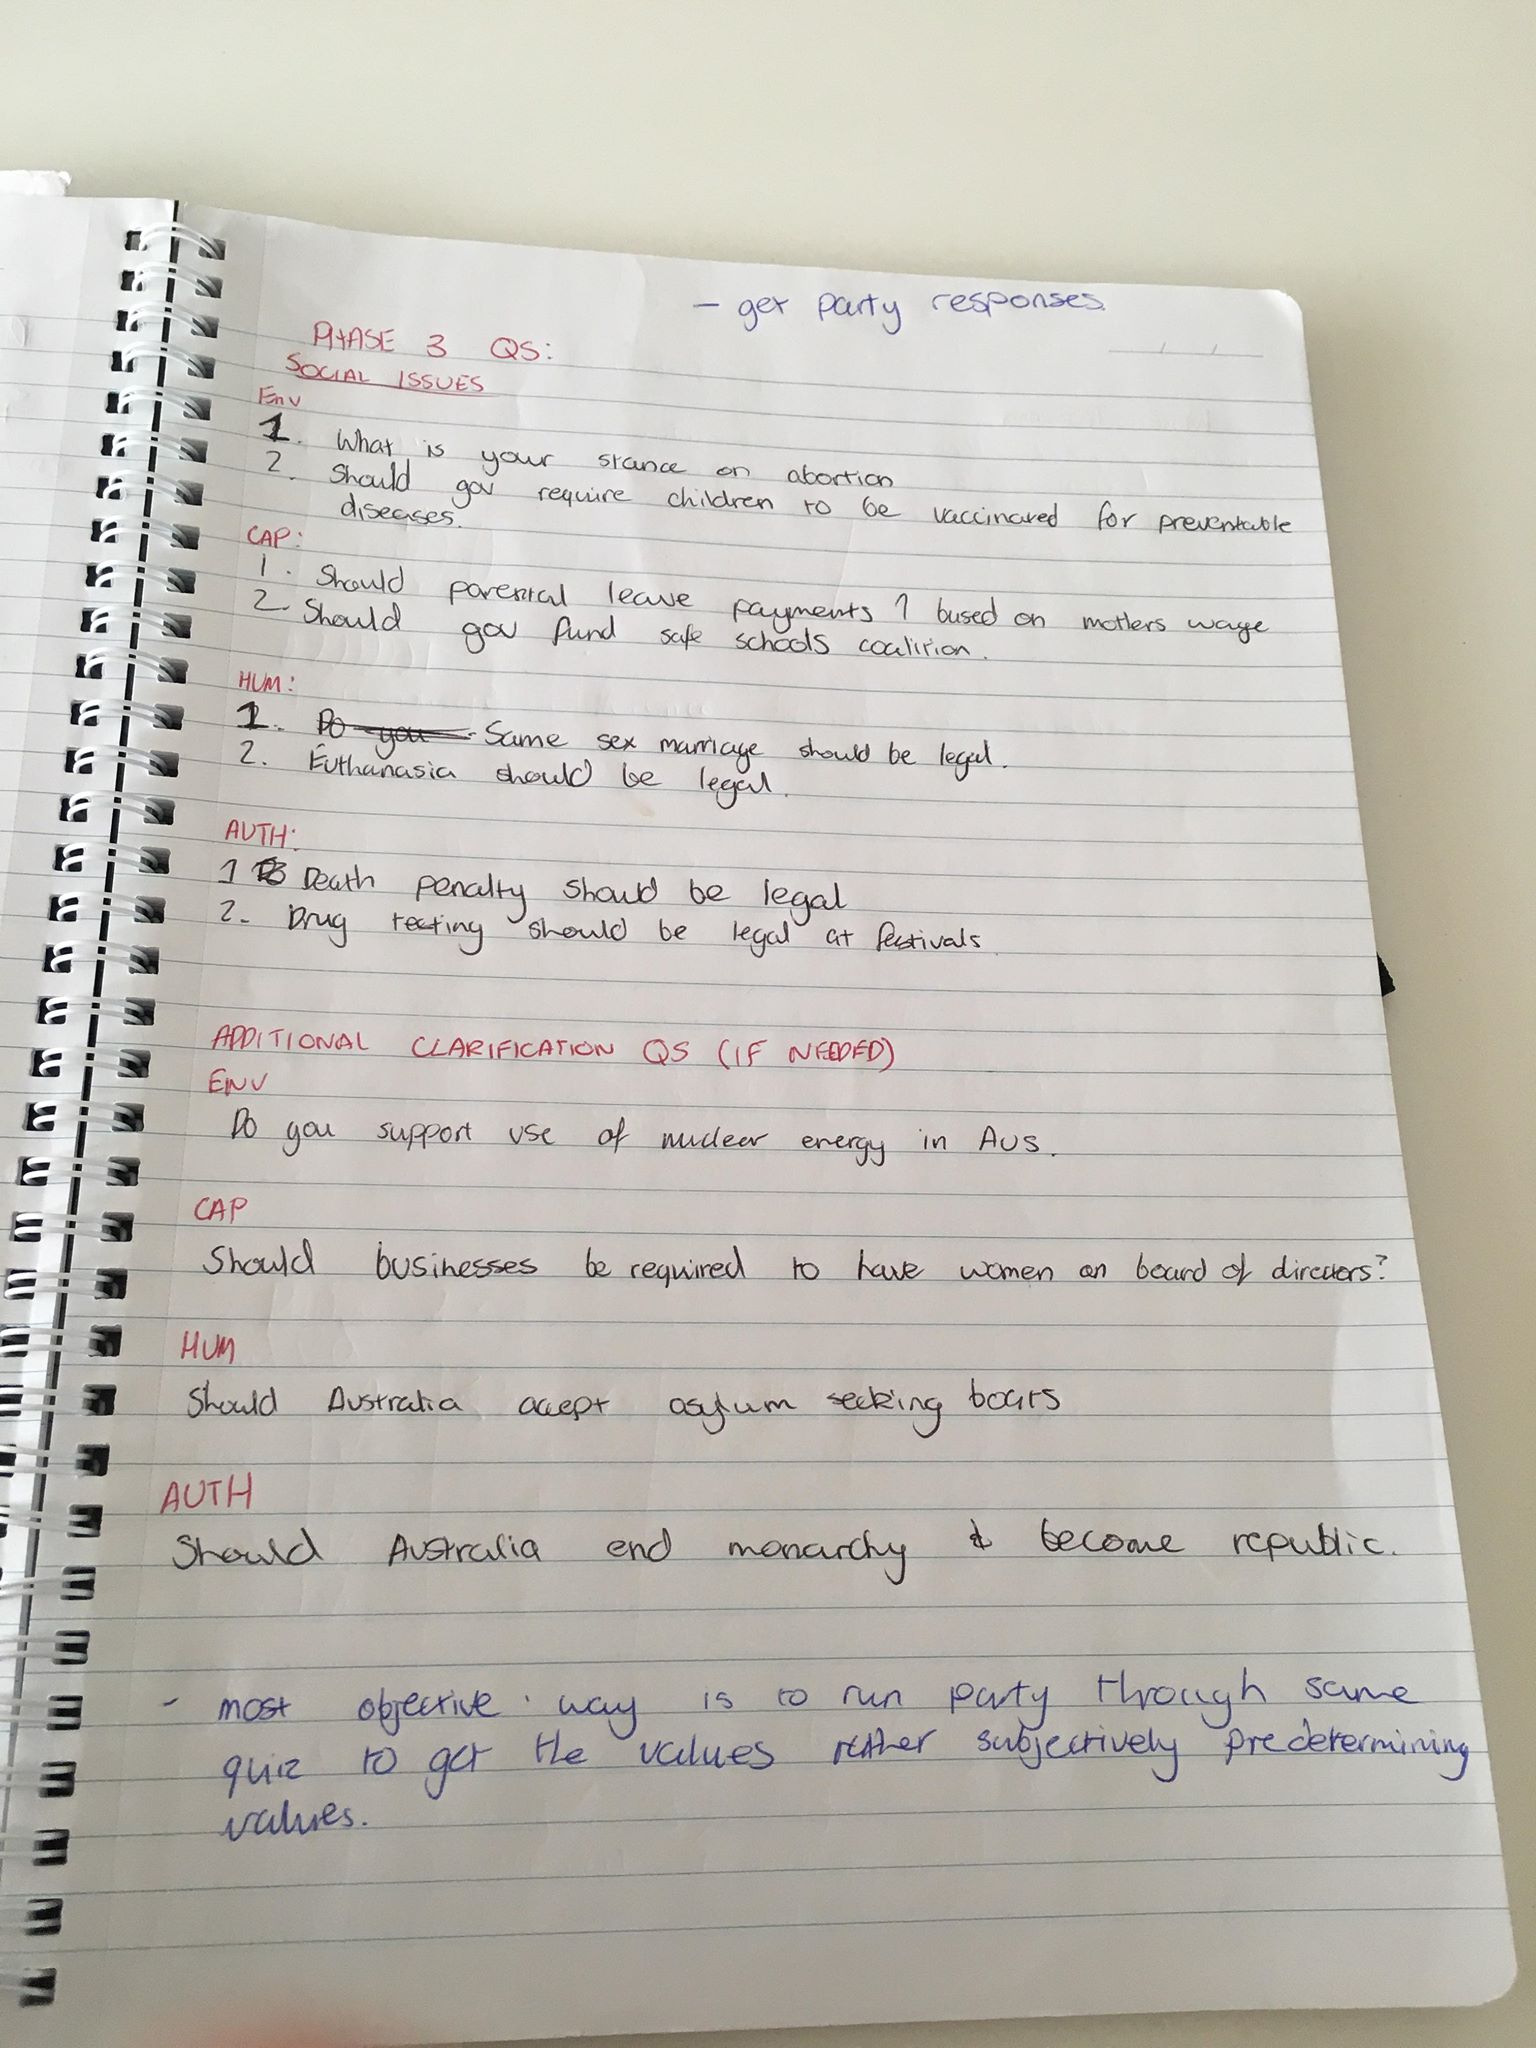 - get party responses.
PHASE 3 QS:
SOCIAL ISSUES
Env
1. What is your stance on abortion
2. Should gov require children to be vaccinated for preventable
diseases.
CAP:
1. Should parental leave payments ↑ based on mothers wage
2. Should gov fund safe schools coalition.
HUM:
1. Do you Same sex marriage should be legal.
2. Euthanasia should be legal.
AUTH:
1 Death penalty should be legal
2. Drug testing should be legal at festivals.
ADDITIONAL CLARIFICATION QS (IF NEEDED)
ENV
Do you support use of nuclear energy in AUS.
CAP
Should businesses be required to have women on board of directors?
HUM
Should Australia accept asylum seeking boats
AUTH
Should Australia end monarchy & become republic.
- most objective way is to run party through same
quiz to get the values rather subjectively predetermining
values.